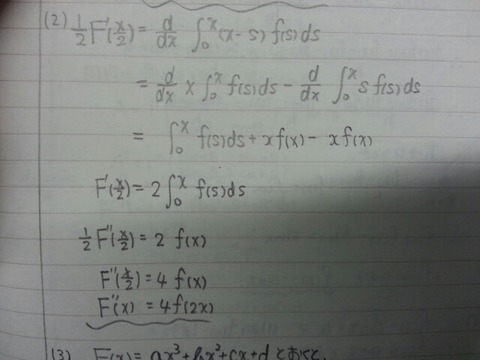 (2) 1/2 F'(x/2) = d/dx ∫₀ˣ (x-s) f(s) ds
= d/dx x ∫₀ˣ f(s) ds - d/dx ∫₀ˣ s f(s) ds
= ∫₀ˣ f(s) ds + x f(x) - x f(x)
F'(x/2) = 2 ∫₀ˣ f(s) ds
1/2 F''(x/2) = 2 f(x)
F''(x/2) = 4 f(x)
F''(x) = 4 f(2x)
(3) F(x) = ax³+bx²+cx+d とおくと、